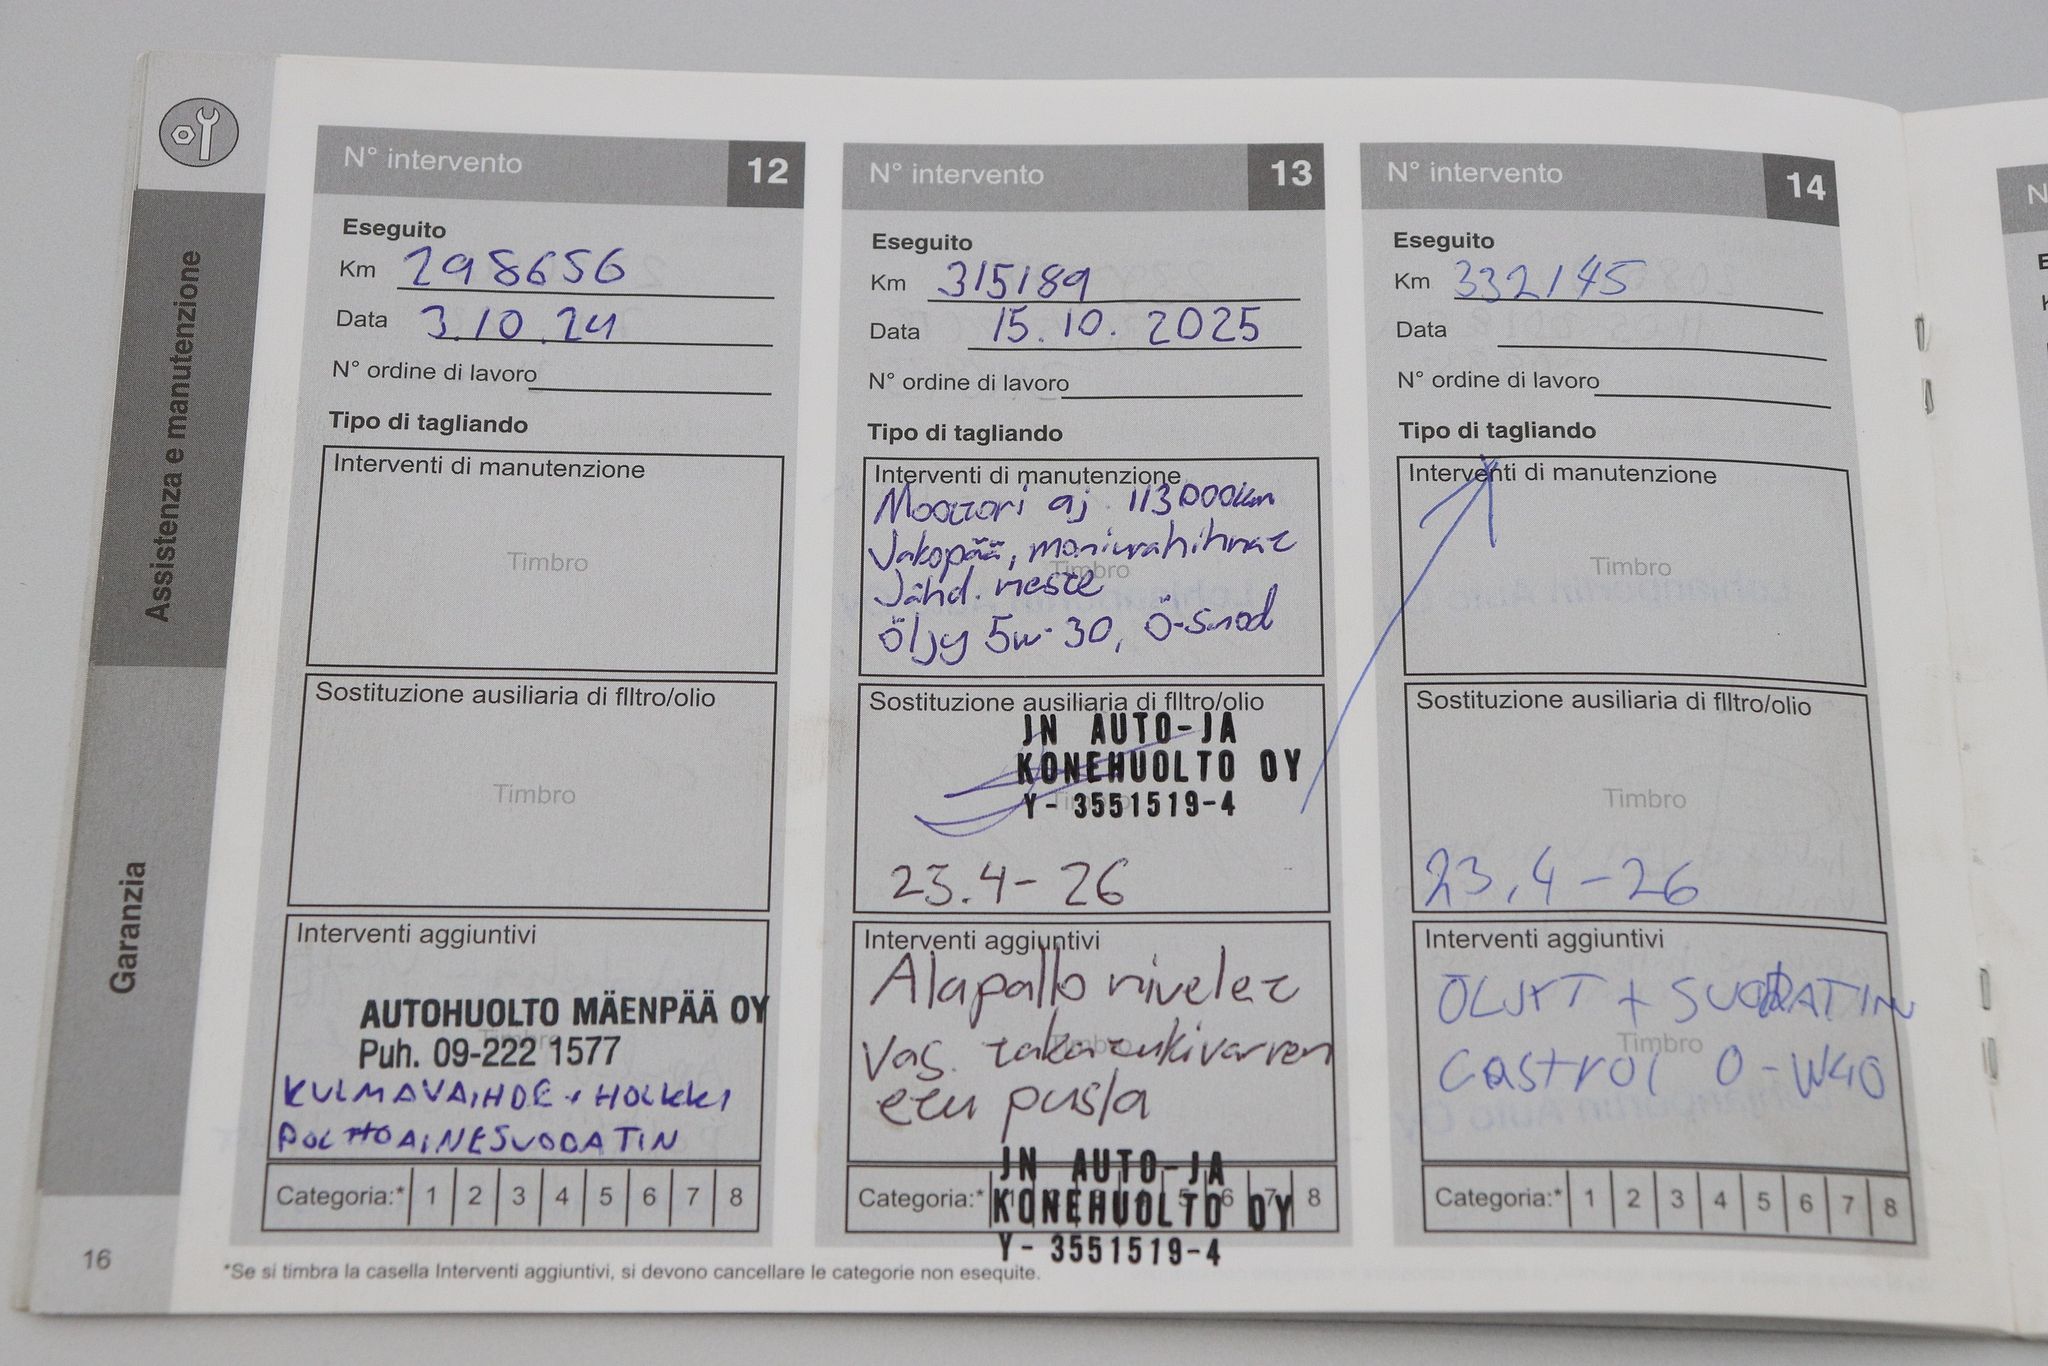 Assistenza e manutenzione
Garanzia
16
N° intervento 12
Eseguito
Km 298656
Data 3.10.24
N° ordine di lavoro
Tipo di tagliando
Interventi di manutenzione
Timbro
Sostituzione ausiliaria di fIltro/olio
Timbro
Interventi aggiuntivi
AUTOHUOLTO MÄENPÄÄ OY
Timbro
Puh. 09-222 1577
KULMAVAIHDE + HOLKKI
POLTTOAINESUODATIN
Categoria:* 1 2 3 4 5 6 7 8
N° intervento 13
Eseguito
Km 315189
Data 15.10. 2025
N° ordine di lavoro
Tipo di tagliando
Interventi di manutenzione
Moottori aj 113000km
Jakopää, moniurahihnat
Timbro
Jähd. neste
öljy 5w-30, ö-suod
Sostituzione ausiliaria di fIltro/olio
JN AUTO-JA
KONEHUOLTO OY
Timbro
Y- 3551519-4
23.4-26
Interventi aggiuntivi
Alapallo nivelet
Vas. takatukivarren
Timbro
etu pusla
JN AUTO-JA
Categoria:* 1 5 6 7 8
KONEHUOLTO OY
Y- 3551519-4
N° intervento 14
Eseguito
Km 332145
Data
N° ordine di lavoro
Tipo di tagliando
Interventi di manutenzione
Timbro
Sostituzione ausiliaria di fIltro/olio
Timbro
23.4-26
Interventi aggiuntivi
ÖLJYT + SUODATIN
Timbro
Castrol 0-W40
Categoria:* 1 2 3 4 5 6 7 8
*Se si timbra la casella Interventi aggiuntivi, si devono cancellare le categorie non esequite.
N